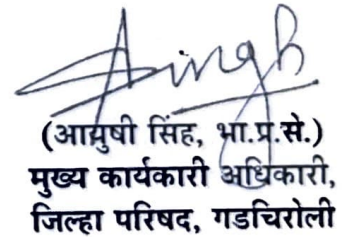 Singh
(आयुषी सिंह, भा.प्र.से.)
मुख्य कार्यकारी अधिकारी,
जिल्हा परिषद, गडचिरोली